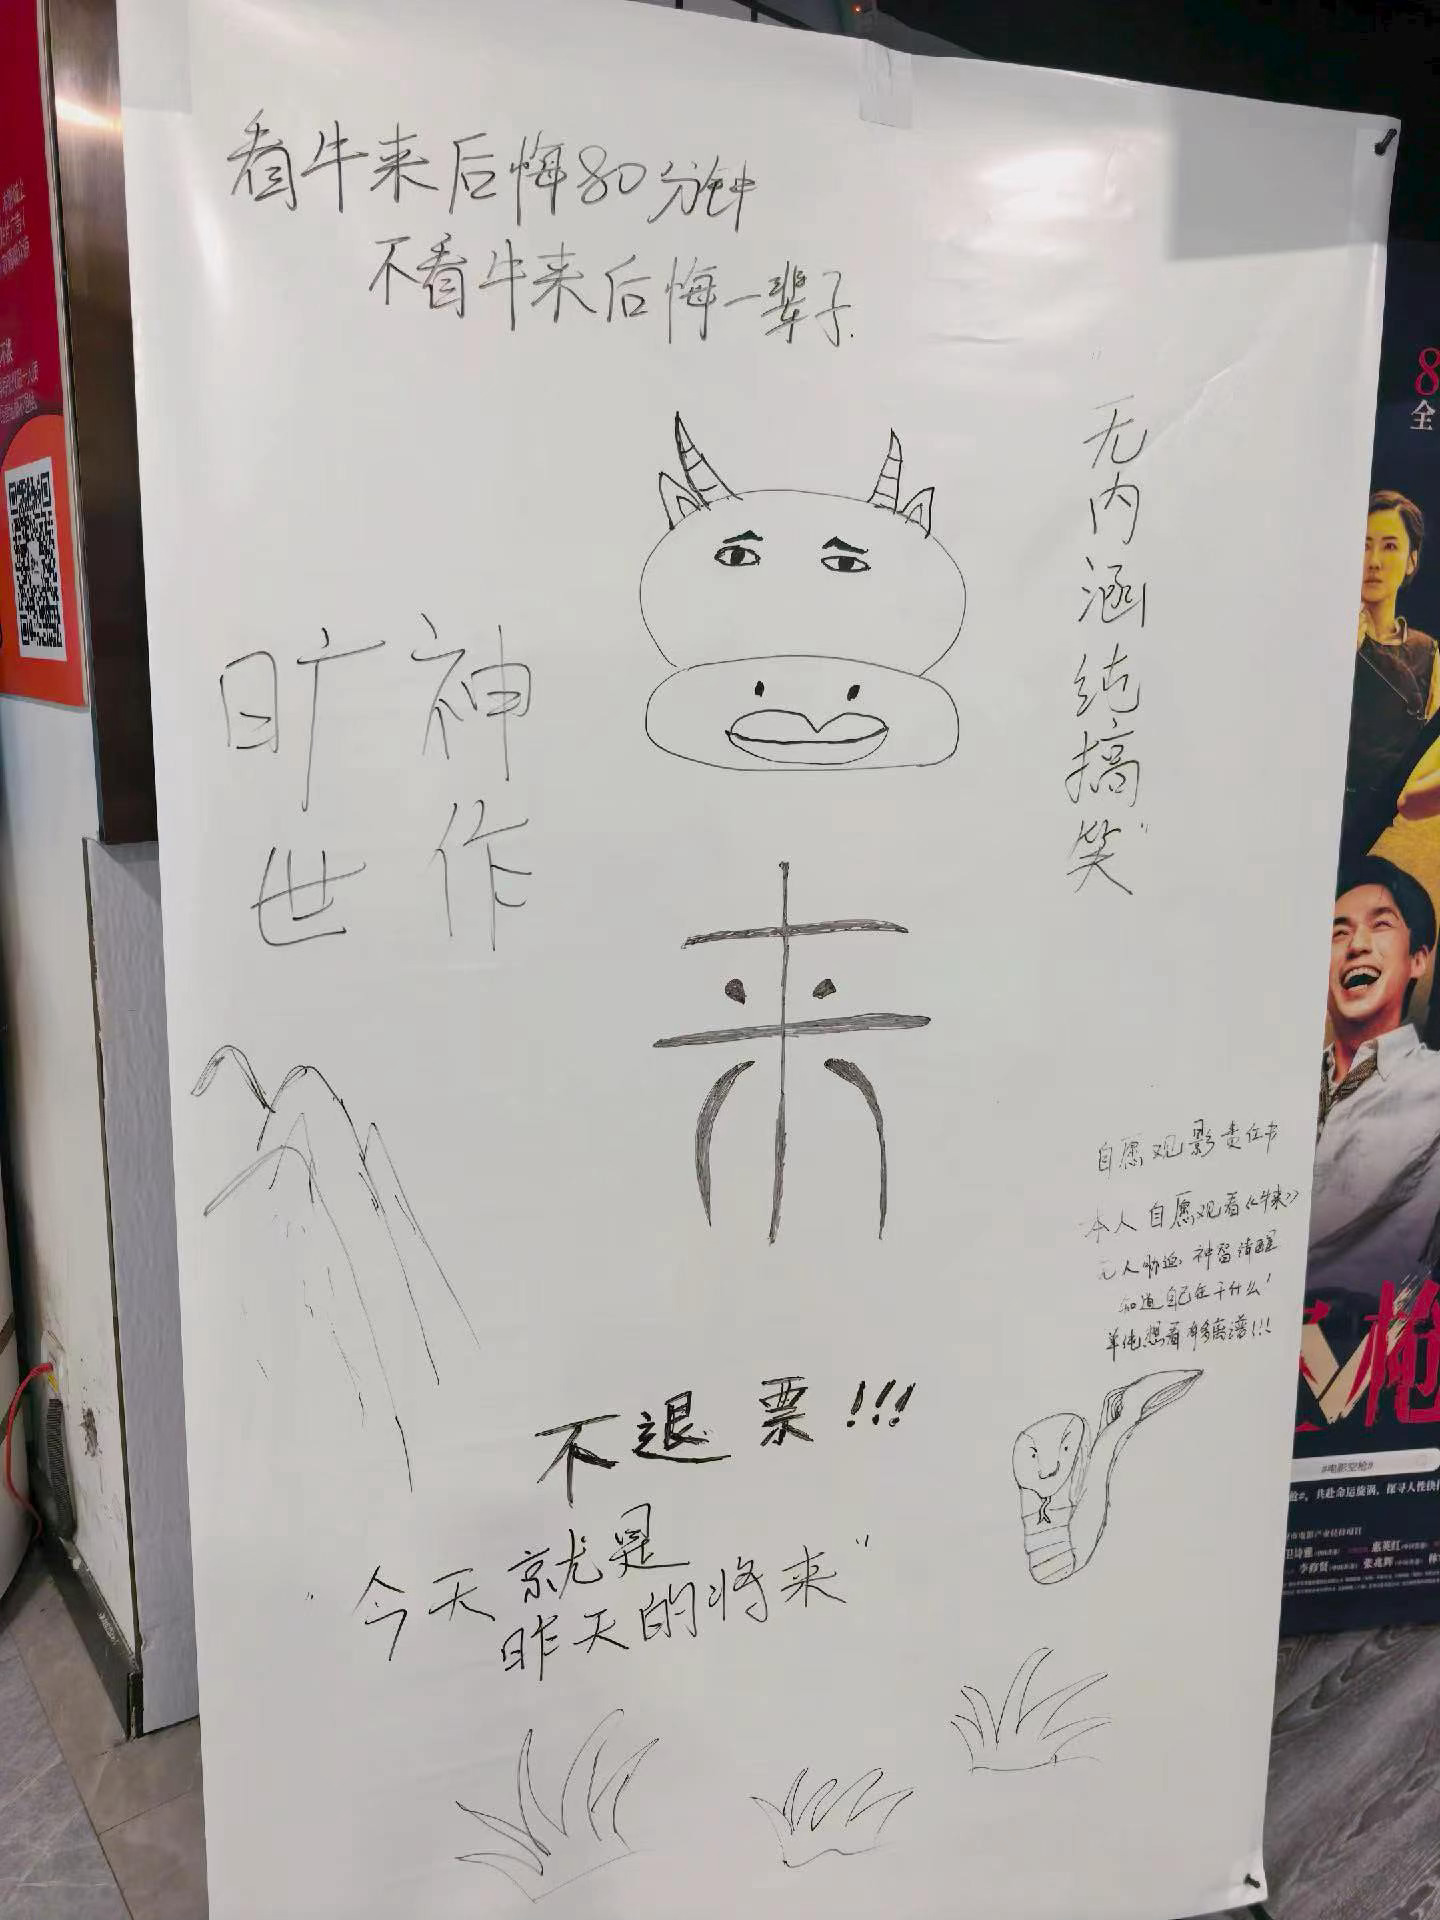 看牛来后悔80分钟
不看牛来后悔一辈子.
无内涵纯搞笑"
旷世
神作
来
自愿观影责任书
本人自愿观看《牛来》
无人胁迫,神智清醒
知道自己在干什么!
单纯想看有多离谱!!!
不退票!!!
"今天就是
昨天的将来"
8
全
枪
#电影空枪#
枪#，共赴命运旋涡，探寻人性抉择